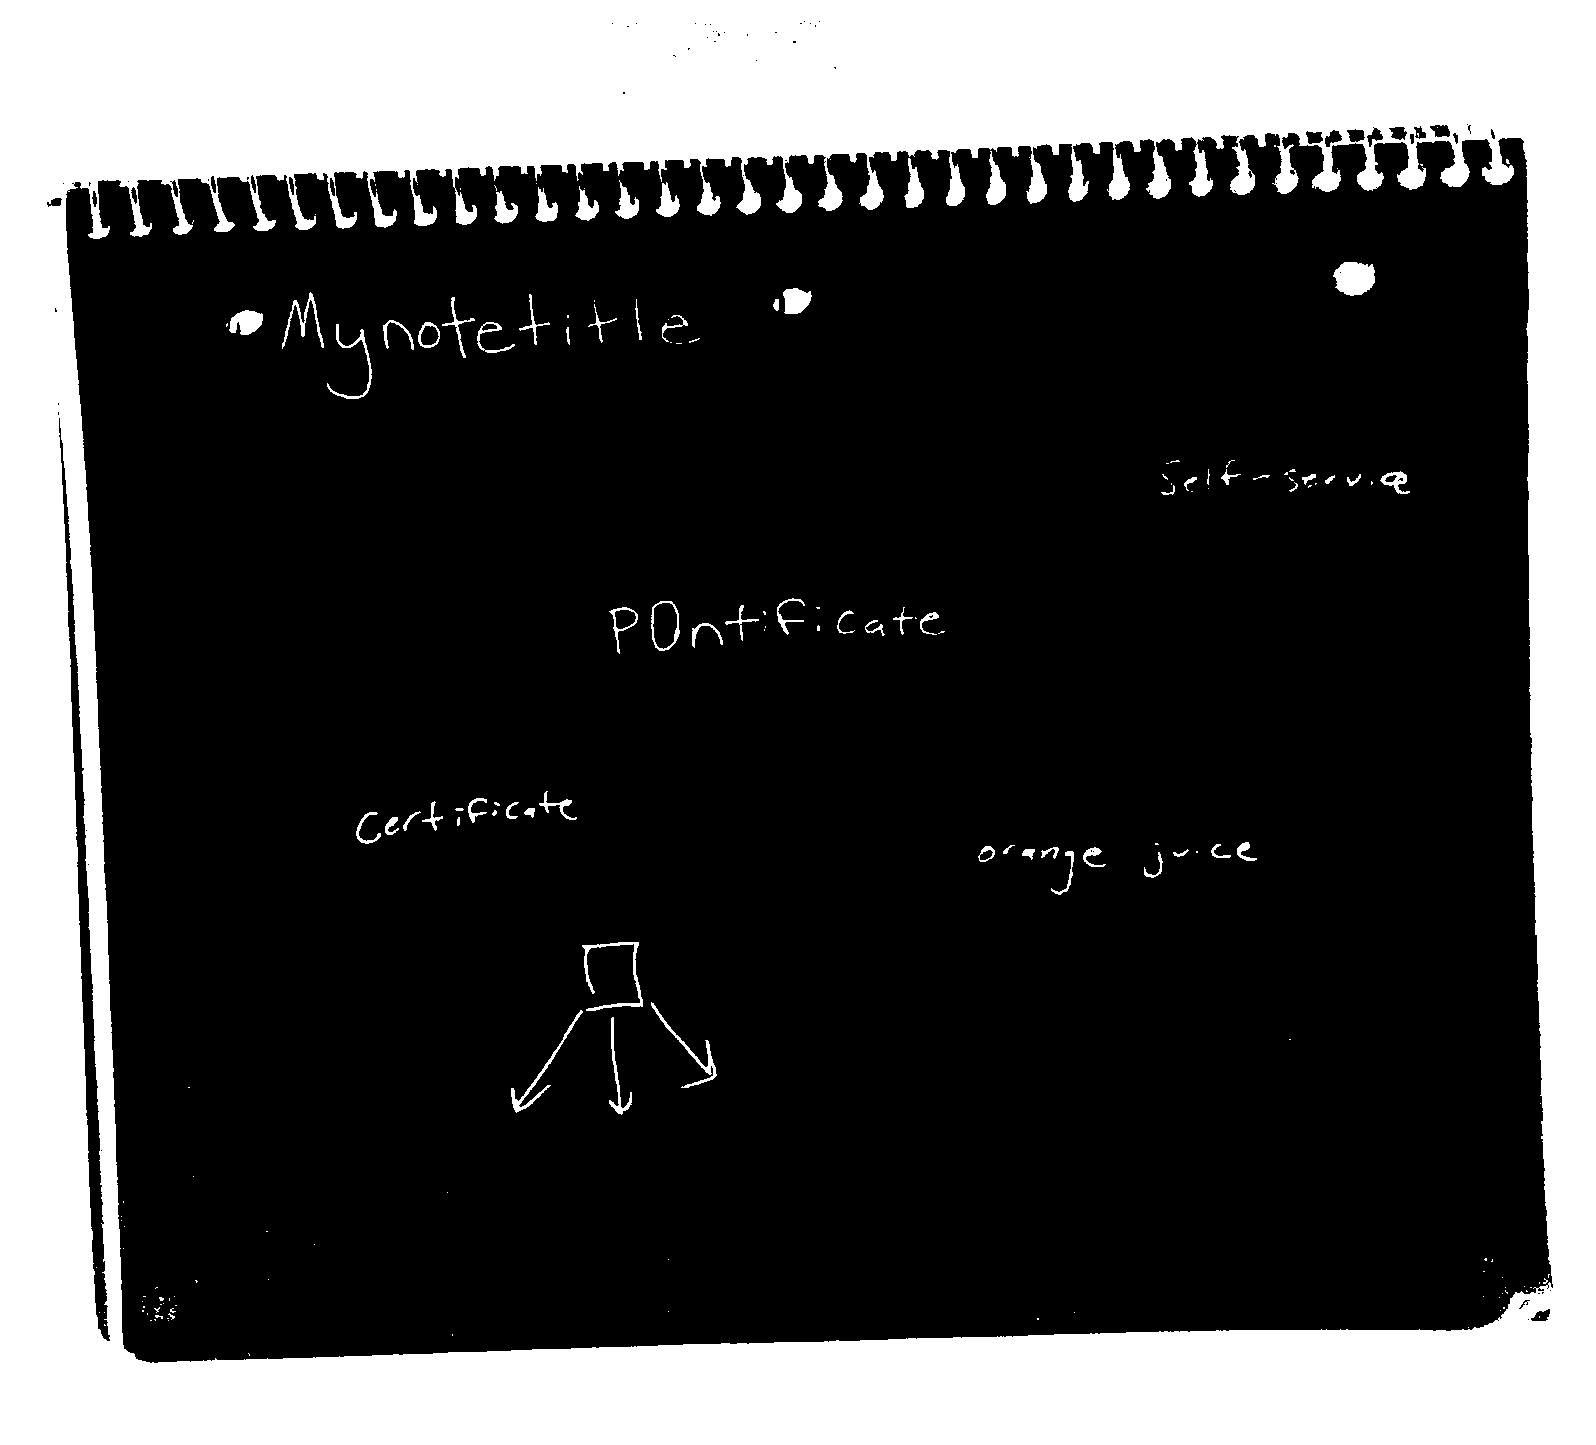 Mynotetitle
Self-service
POntificate
Certificate
orange juice